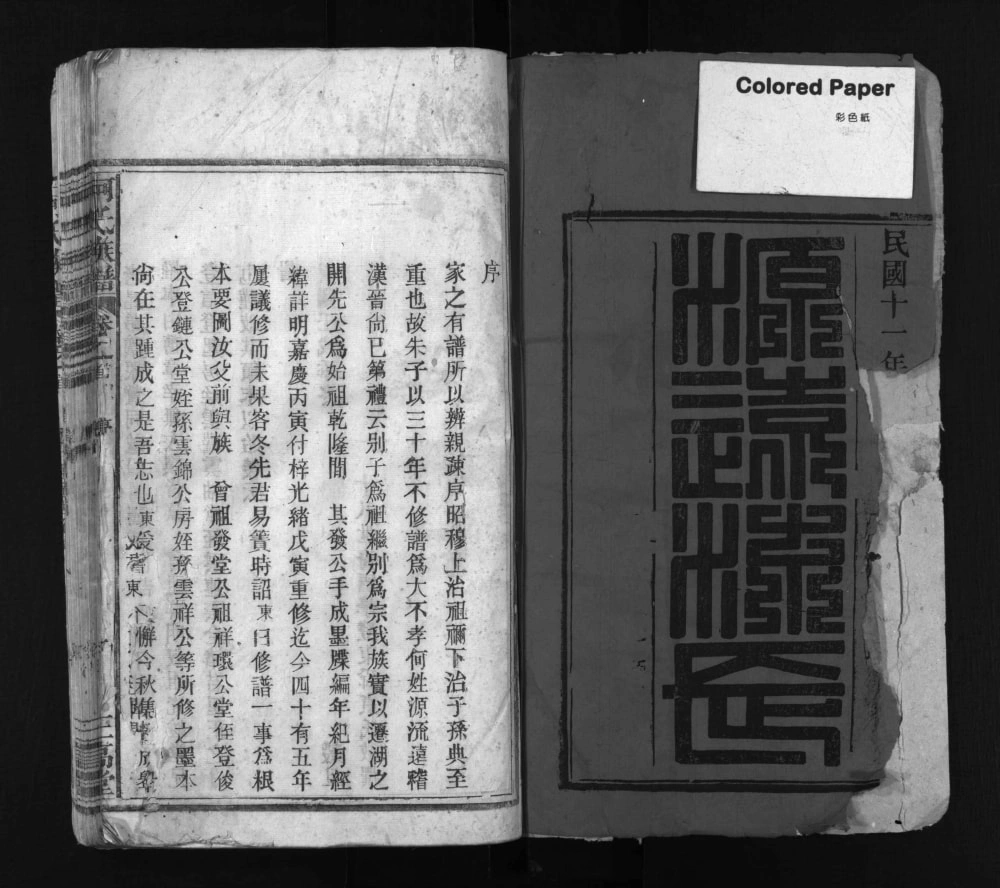 Colored Paper
彩色紙
民國十一年
源遠流長
序
家之有譜所以辨親疎序昭穆上治祖禰下治子孫典至
重也故朱子以三十年不修譜爲大不孝何姓源流遠稽
漢晉尙已第禮云別子爲祖繼別爲宗我族實以遷湖之
開先公爲始祖乾隆間 其發公手成墨牒編年紀月經
緯詳明嘉慶丙寅付梓光緒戊寅重修迄今四十有五年
屢議修而未果客冬先君易簀時詔東曰修譜一事爲根
本要圖汝父前與族 曾祖發堂公祖祥瓌公堂侄登俊
公登鏈公堂姪孫雲錦公房姪孫雲祥公等所修之墨本
尙在其踵成之是吾志也東 東 懈今秋集
何氏族譜
三高堂